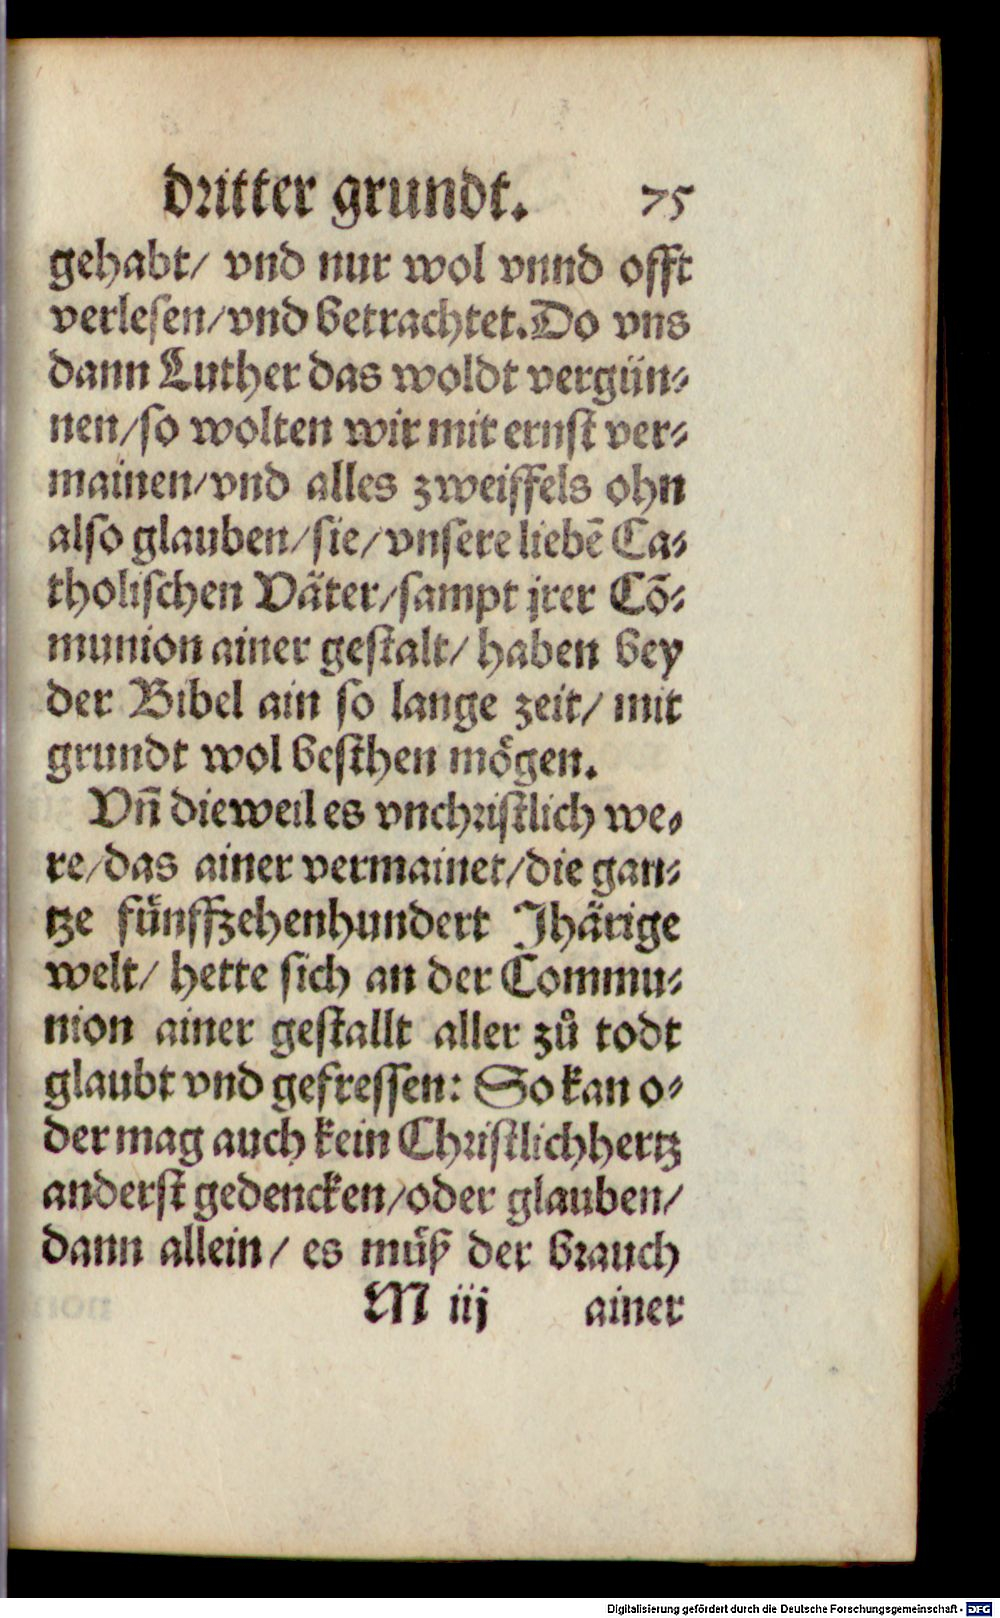 dritter grundt. 75
gehabt/ vnd nur wol vnnd offt
verlesen/vnd betrachtet.Do vns
dann Luther das woldt vergün-
nen/so wolten wir mit ernst ver-
mainen/vnd alles zweiffels ohn
also glauben/sie/vnsere liebē Ca-
tholischen Väter/sampt jrer Cō-
munion ainer gestalt/ haben bey
der Bibel ain so lange zeit/ mit
grundt wol besthen mögen.
Vñ dieweil es vnchristlich we-
re/das ainer vermainet/die gan-
tze fünffzehenhundert Jhärige
welt/ hette sich an der Commu-
nion ainer gestallt aller zů todt
glaubt vnd gefressen: So kan o-
der mag auch kein Christlich hertz
anderst gedencken/oder glauben/
dann allein/ es müß der brauch
M iij ainer
Digitalisierung gefördert durch die Deutsche Forschungsgemeinschaft - DFG